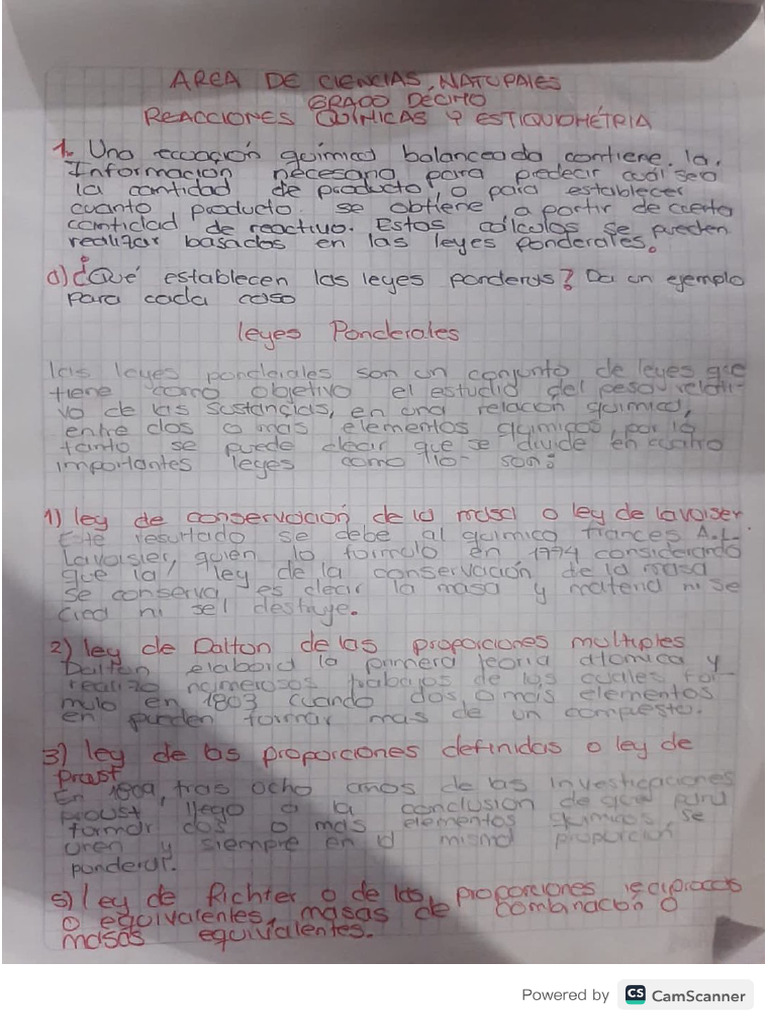 AREA DE CIENCIAS NATURALES
GRADO DÉCIMO
REACCIONES QUÍMICAS Y ESTIQUIOMÉTRIA
1. Una ecuación química balanceada contiene. la.
Información necesaria para predecir cuál sea
la cantidad de producto, o para establecer
cuanto producto se obtiene a partir de cierta
cantidad de reactivo. Estos cálculos se pueden
realizar basados en las leyes ponderales.
a) ¿Qué establecen las leyes ponderus? Da un ejemplo
para cada caso
leyes Ponderales
las leyes ponderales son un conjunto de leyes que
tiene como objetivo el estudio del peso relati-
vo de las sustancias, en una relación química,
entre dos o mas elementos químicos, por lo
tanto se puede decir que se divide en cuatro
importantes leyes como lo son:
1) ley de conservación de la masa o ley de lavoiser
Este resurtado se debe al químico frances A.L.
Lavoisier, quien lo formulo en 1774 considerando
que la ley de la conservación de la masa
se conserva, es decir la masa y materia ni se
crea ni se destruye.
2) ley de Dalton de las proporciones multiples
Dalton elabord la primera teoria atomica y
realizo numerosos trabajos de los cuales for-
mulo en 1803 cuando dos o más elementos
en pueden formar mas de un compuesto.
3) ley de las proporciones definidas o ley de
Prost
En 1809, tras ocho años de las investigaciones
proust llego a la conclusion de que para
formar dos o mas elementos químicos, se
uren y siempre en el misma proporcion
ponderal.
5) ley de Richter o de las proporciones reciprocas
o equivalentes, masas de combinación o
masas equivalentes.
Powered by CS CamScanner